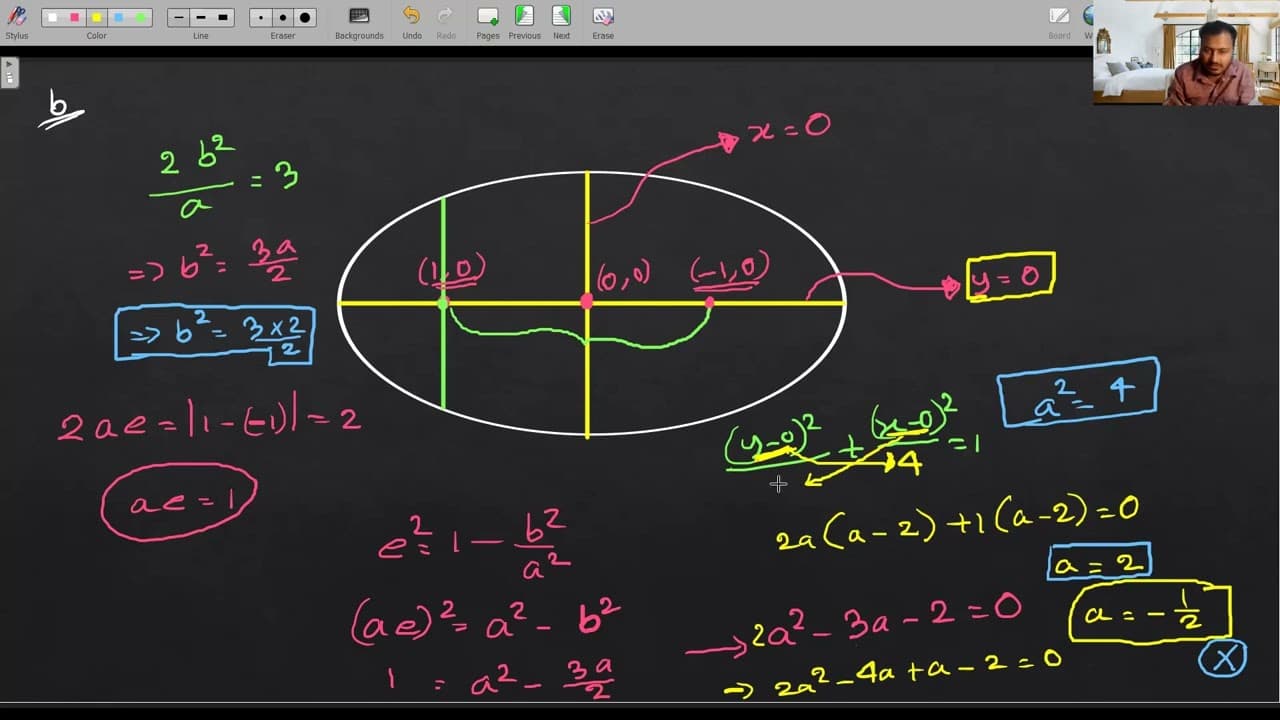 Stylus Color Line Eraser Backgrounds Undo Redo Pages Previous Next Erase Board
b
2b²/a = 3
=> b² = 3a/2
=> b² = 3×2/2
2ae = |1-(-1)| = 2
ae = 1
x = 0
(1,0) (0,0) (-1,0)
y = 0
a² = 4
(y-0)²/ + (x-0)²/4 = 1
e² = 1 - b²/a²
(ae)² = a² - b²
1 = a² - 3a/2
2a(a-2)+1(a-2)=0
a = 2
2a² - 3a - 2 = 0
a = -1/2
X
→ 2a² - 4a + a - 2 = 0